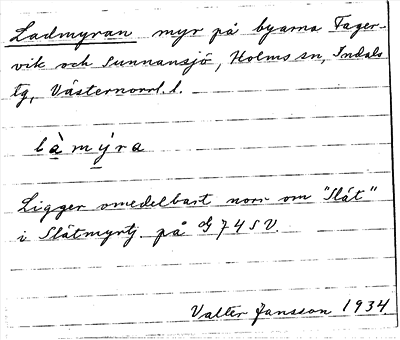 Ladmyran myr på byarna Fager-
vik och Sunnansjö, Holms sn, Indals
tg, Västernorrl. l.
làmy̌ra
Ligger omedelbart norr om "Slåt"
i Slåtmyrtj. på 74 SV.
Valter Jansson 1934.